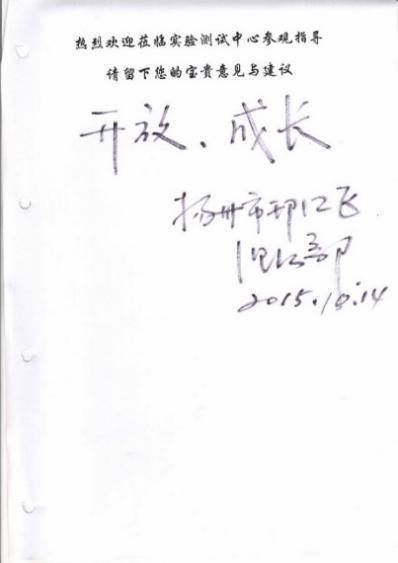 热烈欢迎莅临实验测试中心参观指导
请留下您的宝贵意见与建议
开放、成长
扬州市邗江
2015.10.14